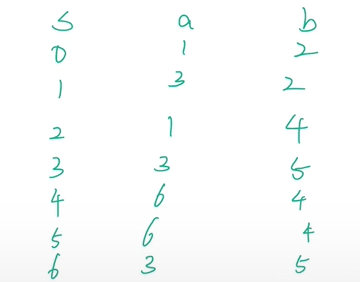 s a b
0 1 2
1 3 2
2 1 4
3 3 5
4 6 4
5 6 4
6 3 5